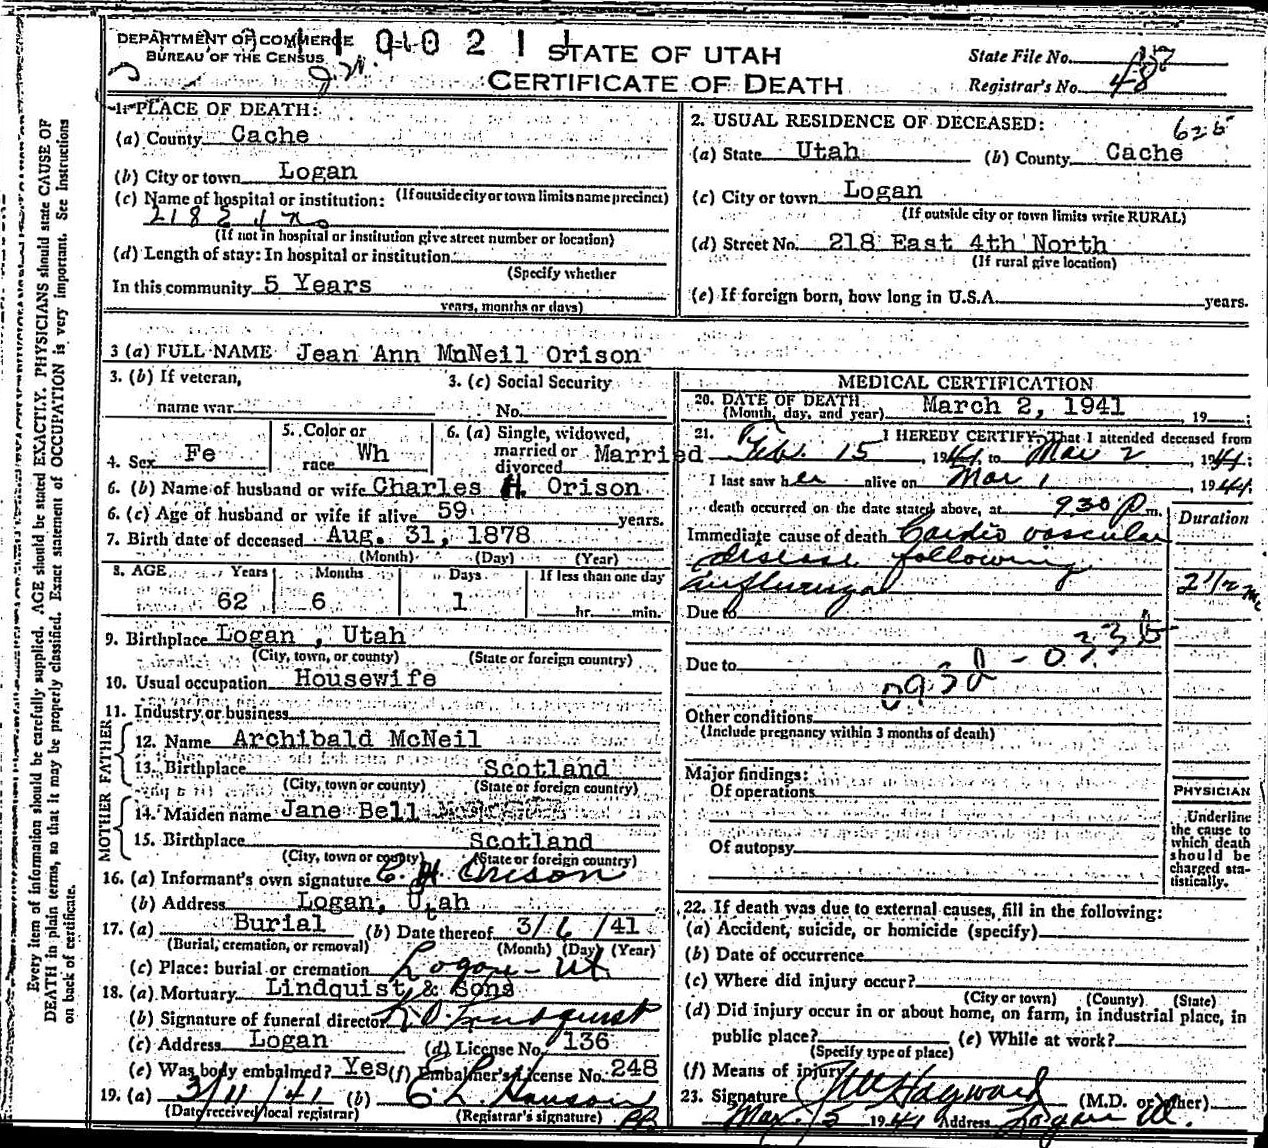 DEPARTMENT OF COMMERCE
BUREAU OF THE CENSUS
STATE OF UTAH
CERTIFICATE OF DEATH
State File No.
Registrar's No. 48
1. PLACE OF DEATH:
(a) County Cache
(b) City or town Logan
(If outside city or town limits name precinct)
(c) Name of hospital or institution:
218 E 4 No
(If not in hospital or institution give street number or location)
(d) Length of stay: In hospital or institution
(Specify whether
In this community 5 Years
years, months or days)
2. USUAL RESIDENCE OF DECEASED:
625
(a) State Utah (b) County Cache
(c) City or town Logan
(If outside city or town limits write RURAL)
(d) Street No. 218 East 4th North
(If rural give location)
(e) If foreign born, how long in U.S.A. years.
3 (a) FULL NAME Jean Ann MnNeil Orison
3. (b) If veteran,
name war
3. (c) Social Security
No.
4. Sex Fe
5. Color or
race Wh
6. (a) Single, widowed,
married or
divorced Married
6. (b) Name of husband or wife Charles H. Orison
6. (c) Age of husband or wife if alive 59 years.
7. Birth date of deceased Aug. 31, 1878
(Month) (Day) (Year)
8. AGE Years Months Days If less than one day
62 6 1 hr. min.
9. Birthplace Logan , Utah
(City, town, or county) (State or foreign country)
10. Usual occupation Housewife
11. Industry or business
FATHER
12. Name Archibald McNeil
13. Birthplace Scotland
(City, town or county) (State or foreign country)
MOTHER
14. Maiden name Jane Bell
15. Birthplace Scotland
(City, town or county) (State or foreign country)
16. (a) Informant's own signature C. H. Orison
(b) Address Logan, Utah
17. (a) Burial (b) Date thereof 3/ 6 /41
(Burial, cremation, or removal) (Month) (Day) (Year)
(c) Place: burial or cremation Logan - Ut
18. (a) Mortuary Lindquist & Sons
(b) Signature of funeral director Lindquist
(c) Address Logan (d) License No. 136
(e) Was body embalmed? Yes (f) Embalmer's License No. 248
19. (a) 3/11/41 (b) C L Hanson
(Date received local registrar) (Registrar's signature)
MEDICAL CERTIFICATION
20. DATE OF DEATH
(Month, day, and year) March 2, 1941 , 19 ;
21. I HEREBY CERTIFY, That I attended deceased from
Feb. 15 , 1941, to Mar 2 , 1941;
I last saw her alive on Mar 1 , 1941;
death occurred on the date stated above, at 930 P m.
Duration
Immediate cause of death Cardio vascular
disease following
influenza
2 1/2
Due to
Due to
Other conditions
(Include pregnancy within 3 months of death)
Major findings:
Of operations
Of autopsy
PHYSICIAN
Underline
the cause to
which death
should be
charged sta-
tistically.
22. If death was due to external causes, fill in the following:
(a) Accident, suicide, or homicide (specify)
(b) Date of occurrence
(c) Where did injury occur?
(City or town) (County) (State)
(d) Did injury occur in or about home, on farm, in industrial place, in
public place? (e) While at work?
(Specify type of place)
(f) Means of injury
23. Signature Hayward (M.D. or other)
Mar. 5 1941 Address Logan Ut.
Every item of information should be carefully supplied. AGE should be stated EXACTLY. PHYSICIANS should state CAUSE OF
DEATH in plain terms, so that it may be properly classified. Exact statement of OCCUPATION is very important. See Instructions
on back of certificate.